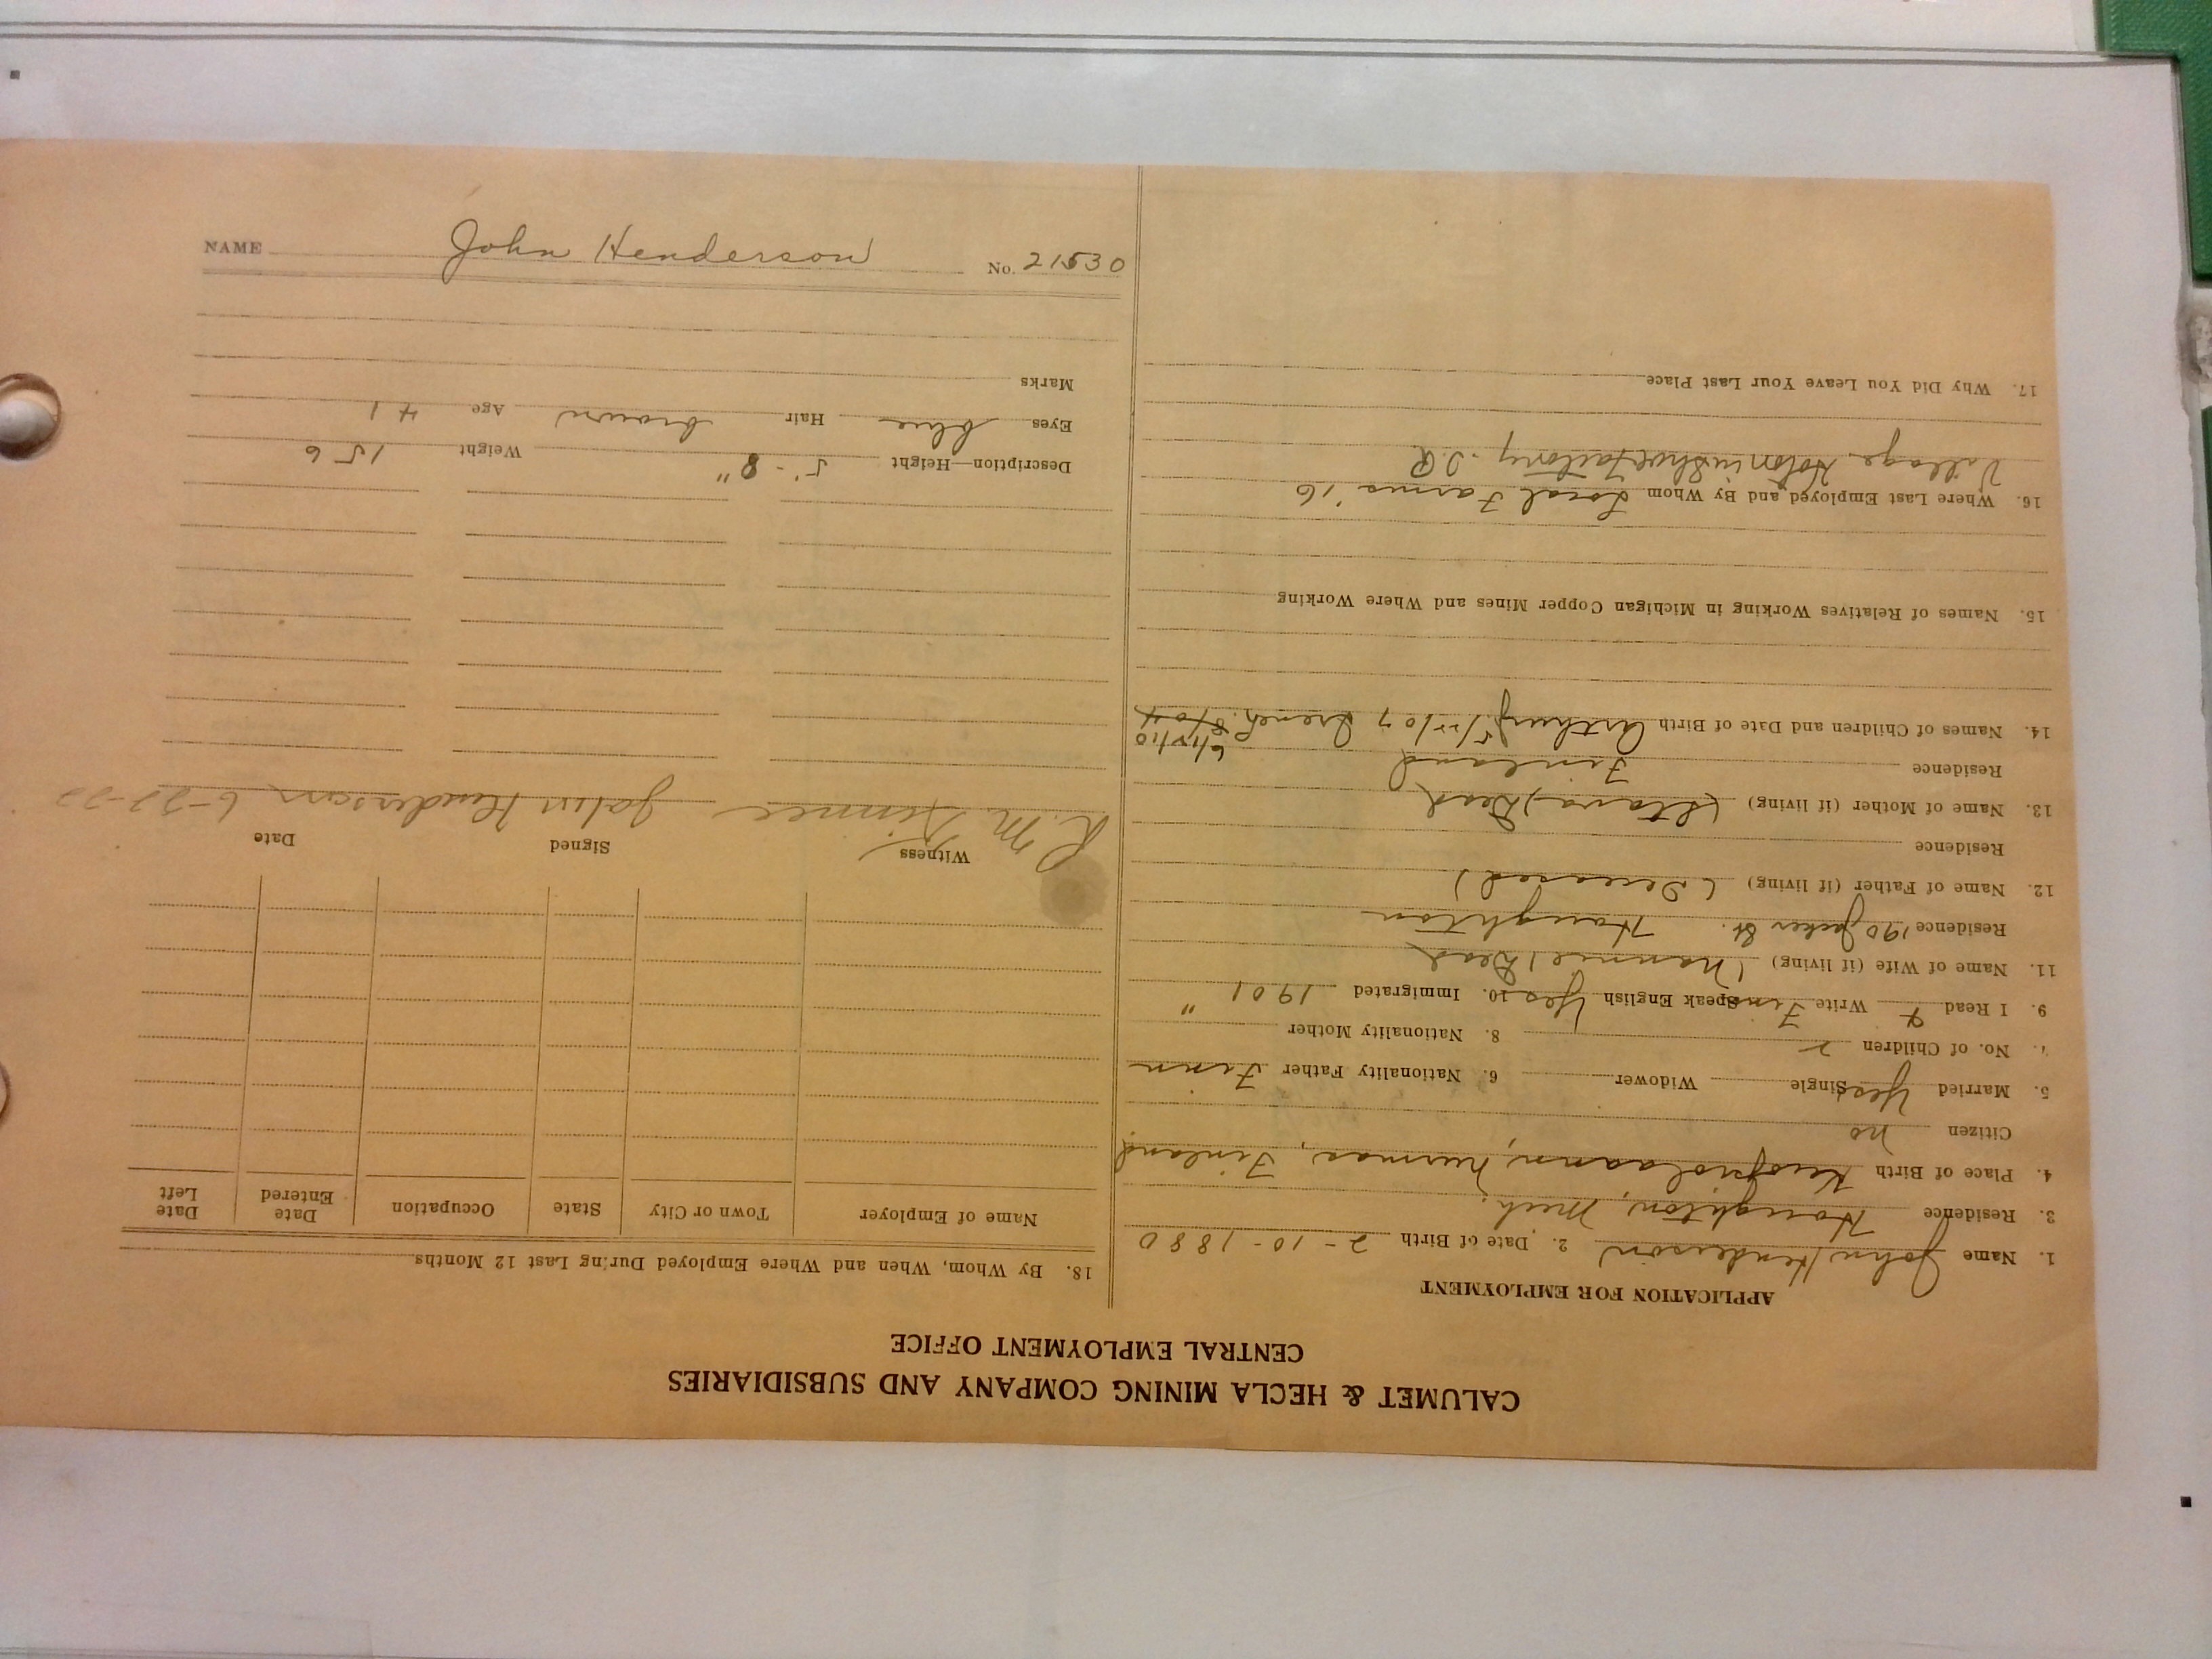 CALUMET & HECLA MINING COMPANY AND SUBSIDIARIES
CENTRAL EMPLOYMENT OFFICE
APPLICATION FOR EMPLOYMENT
1. Name John Henderson 2. Date of Birth 2-10-1880
3. Residence Houghton, Mich.
4. Place of Birth Kuopiolaann, Nurmas, Finland
Citizen no
5. Married Yes Single Widower 6. Nationality Father Finn
7. No. of Children 2 8. Nationality Mother "
9. I Read & Write Finn Speak English Yes 10. Immigrated 1901
11. Name of Wife (if living) (Nannie) Dead
Residence 190 St. Houghton
12. Name of Father (if living) (Deceased)
Residence
13. Name of Mother (if living) Dead
Residence Finland
14. Names of Children and Date of Birth Arthur
15. Names of Relatives Working in Michigan Copper Mines and Where Working
16. Where Last Employed and By Whom Local Farms '16
Village
17. Why Did You Leave Your Last Place
18. By Whom, When and Where Employed During Last 12 Months
Name of Employer Town or City State Occupation Date Entered Date Left
Witness Signed Date
R. M. John Henderson 6-22-22
Description—Height 5'-8" Weight 156
Eyes blue Hair brown Age 41
Marks
NAME John Henderson No. 21530